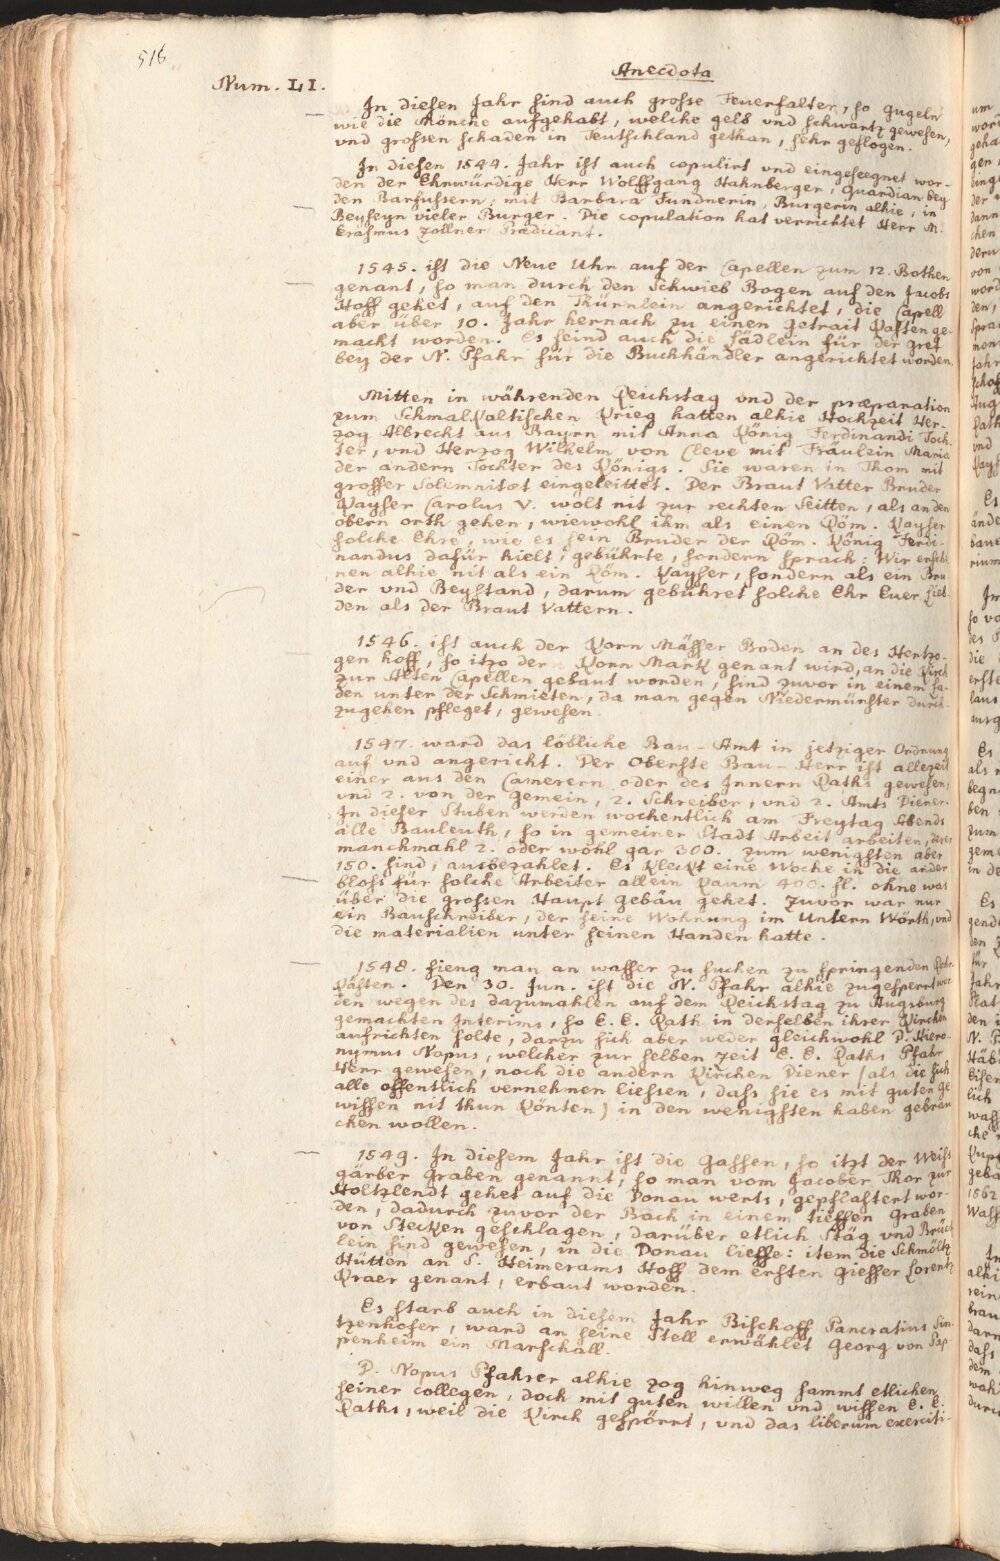 518
Anecdota
Num. LI.
In diesen Jahr sind auch grosse Feuerfalter, so gugeln
wie die Mönche aufgehabt, welche gelb vnd schwartz gewesen,
vnd grossen schaden in Teutschland gethan, sehr geflogen.
In diesen 1544. Jahr ist auch copulirt vnd eingeseegnet wor-
den der Ehrwürdige Herr Wolffgang Hahnberger, Guardian bey
den Barfussern, mit Barbara Fundnerin, Burgerin alhie, in
Beyseyn vieler Burger. Die copulation hat verrichtet Herr M.
Erasmus Zollner Prædicant.
1545. ist die Neue Uhr auf der Capellen zum 12. Bothen
genant, so man durch den Schwieb Bogen auf den Jacobs
Hoff gehet, auf den Thürnlein angerichtet, die Capell
aber über 10. Jahr hernach zu einen getrait Kasten ge-
macht worden. Es seind auch die lädlein für der gret
bey der N. Pfahr für die Buchhändler angerichtet worden.
Mitten in währenden Reichstag vnd der præparation
zum Schmalkaltischen Krieg hatten alhie Hochzeit Her-
zog Albrecht aus Bayrn mit Anna König Ferdinandi Toch-
ter, vnd Herzog Wilhelm von Cleve mit Fräulein Maria
der andern Tochter des Königs. Sie waren in Thom mit
grosser Solemnitæt eingeleittet. Der Braut Vatter Bruder
Kayser Carolus V. wolt nit zur rechten Seitten, als an den
obern orth gehen, wiewohl ihm als einen Röm. Kayser
solche Ehre, wie es sein Bruder der Röm. König Ferdi-
nandus dafür hielt, gebührte, sondern sprach: Wir erschi-
nen alhie nit als ein Röm. Kayser, sondern als ein Bru
der vnd Beystand, darum gebühret solche Ehr Euer Lieb-
den als der Braut Vattern.
1546. ist auch der Korn Mässer Boden an des Hertzo-
gen hoff, so itzo der Korn Markt genant wird, an die Kirch
zur Alten Capellen gebaut worden, sind zuvor in einem la-
den unter der Schmieten, da man gegen Niedermünster durch-
zugehen pfleget, gewesen.
1547. ward das löbliche Bau-Amt in jetziger Ordnung
auf vnd angericht. Der Oberste Bau-Herr ist allezeit
einer aus den Camerern oder des Innern Raths gewesen,
vnd 2. von der Gemein, 2. Schreiber, vnd 2. Amts Diener.
In dieser Stuben werden wochentlich am Freytag Abends
alle Bauleuth, so in gemeiner Stadt Arbeit arbeiten, derer
manchmahl 2. oder wohl gar 300. zum wenigsten aber
150. sind, ausbezahlet. Es kleckt eine Woche in die ander
bloss für solche Arbeiter allein kaum 400. fl. ohne was
über die grossen Haupt gebäu gehet. Zuvor war nur
ein Bauschreiber, der seine Wohnung im Untern Wörth, vnd
die materialien unter seinen Handen hatte.
1548. fieng man an wasser zu suchen zu springenden Rohr-
Kästen. Den 30. Jun. ist die N. Pfahr alhie zugesperrt wor-
den wegen des dazumahlen auf dem Reichstag zu Augsburg
gemachten Interims, so E. E. Rath in derselben ihrer Kirchen
aufrichten solte, darzu sich aber weder gleichwohl D. Hiero-
nymus Nopus, welcher zur selben Zeit E. E. Raths Pfahr
Herr gewesen, noch die andern Kirchen Diener (als die sich
alle offentlich vernehmen liessen, dass sie es mit guten ge
wissen nit thun könten) in den wenigsten haben gebrau
chen wollen.
1549. In diesem Jahr ist die Gassen, so itzt der Weiss
gärber Graben genannt, so man vom Jacober Thor zur
Holtzlendt gehet auf die Donau werts, gepflastert wor-
den, dadurch zuvor der Bach in einem tieffen Graben
von Stecken geschlagen, darüber etlich Stäg vnd Brück
lein sind gewesen, in die Donau lieffe: item die Schmöltz
Hütten an S. Heimerams Hoff dem ersten giesser Lorentz
Kraer genant, erbaut worden.
Es starb auch in diesem Jahr Bischoff Pancratius Sin-
tzenhofer, ward an seine Stell erwählet Georg von Pap-
penheim ein Marschall.
D. Nopus Pfahrer alhie zog hinweg sammt etlichen
seiner collegen, doch mit guten willen vnd wissen E. E.
Raths, weil die Kirch gespörrt, vnd das liberum exerciti-